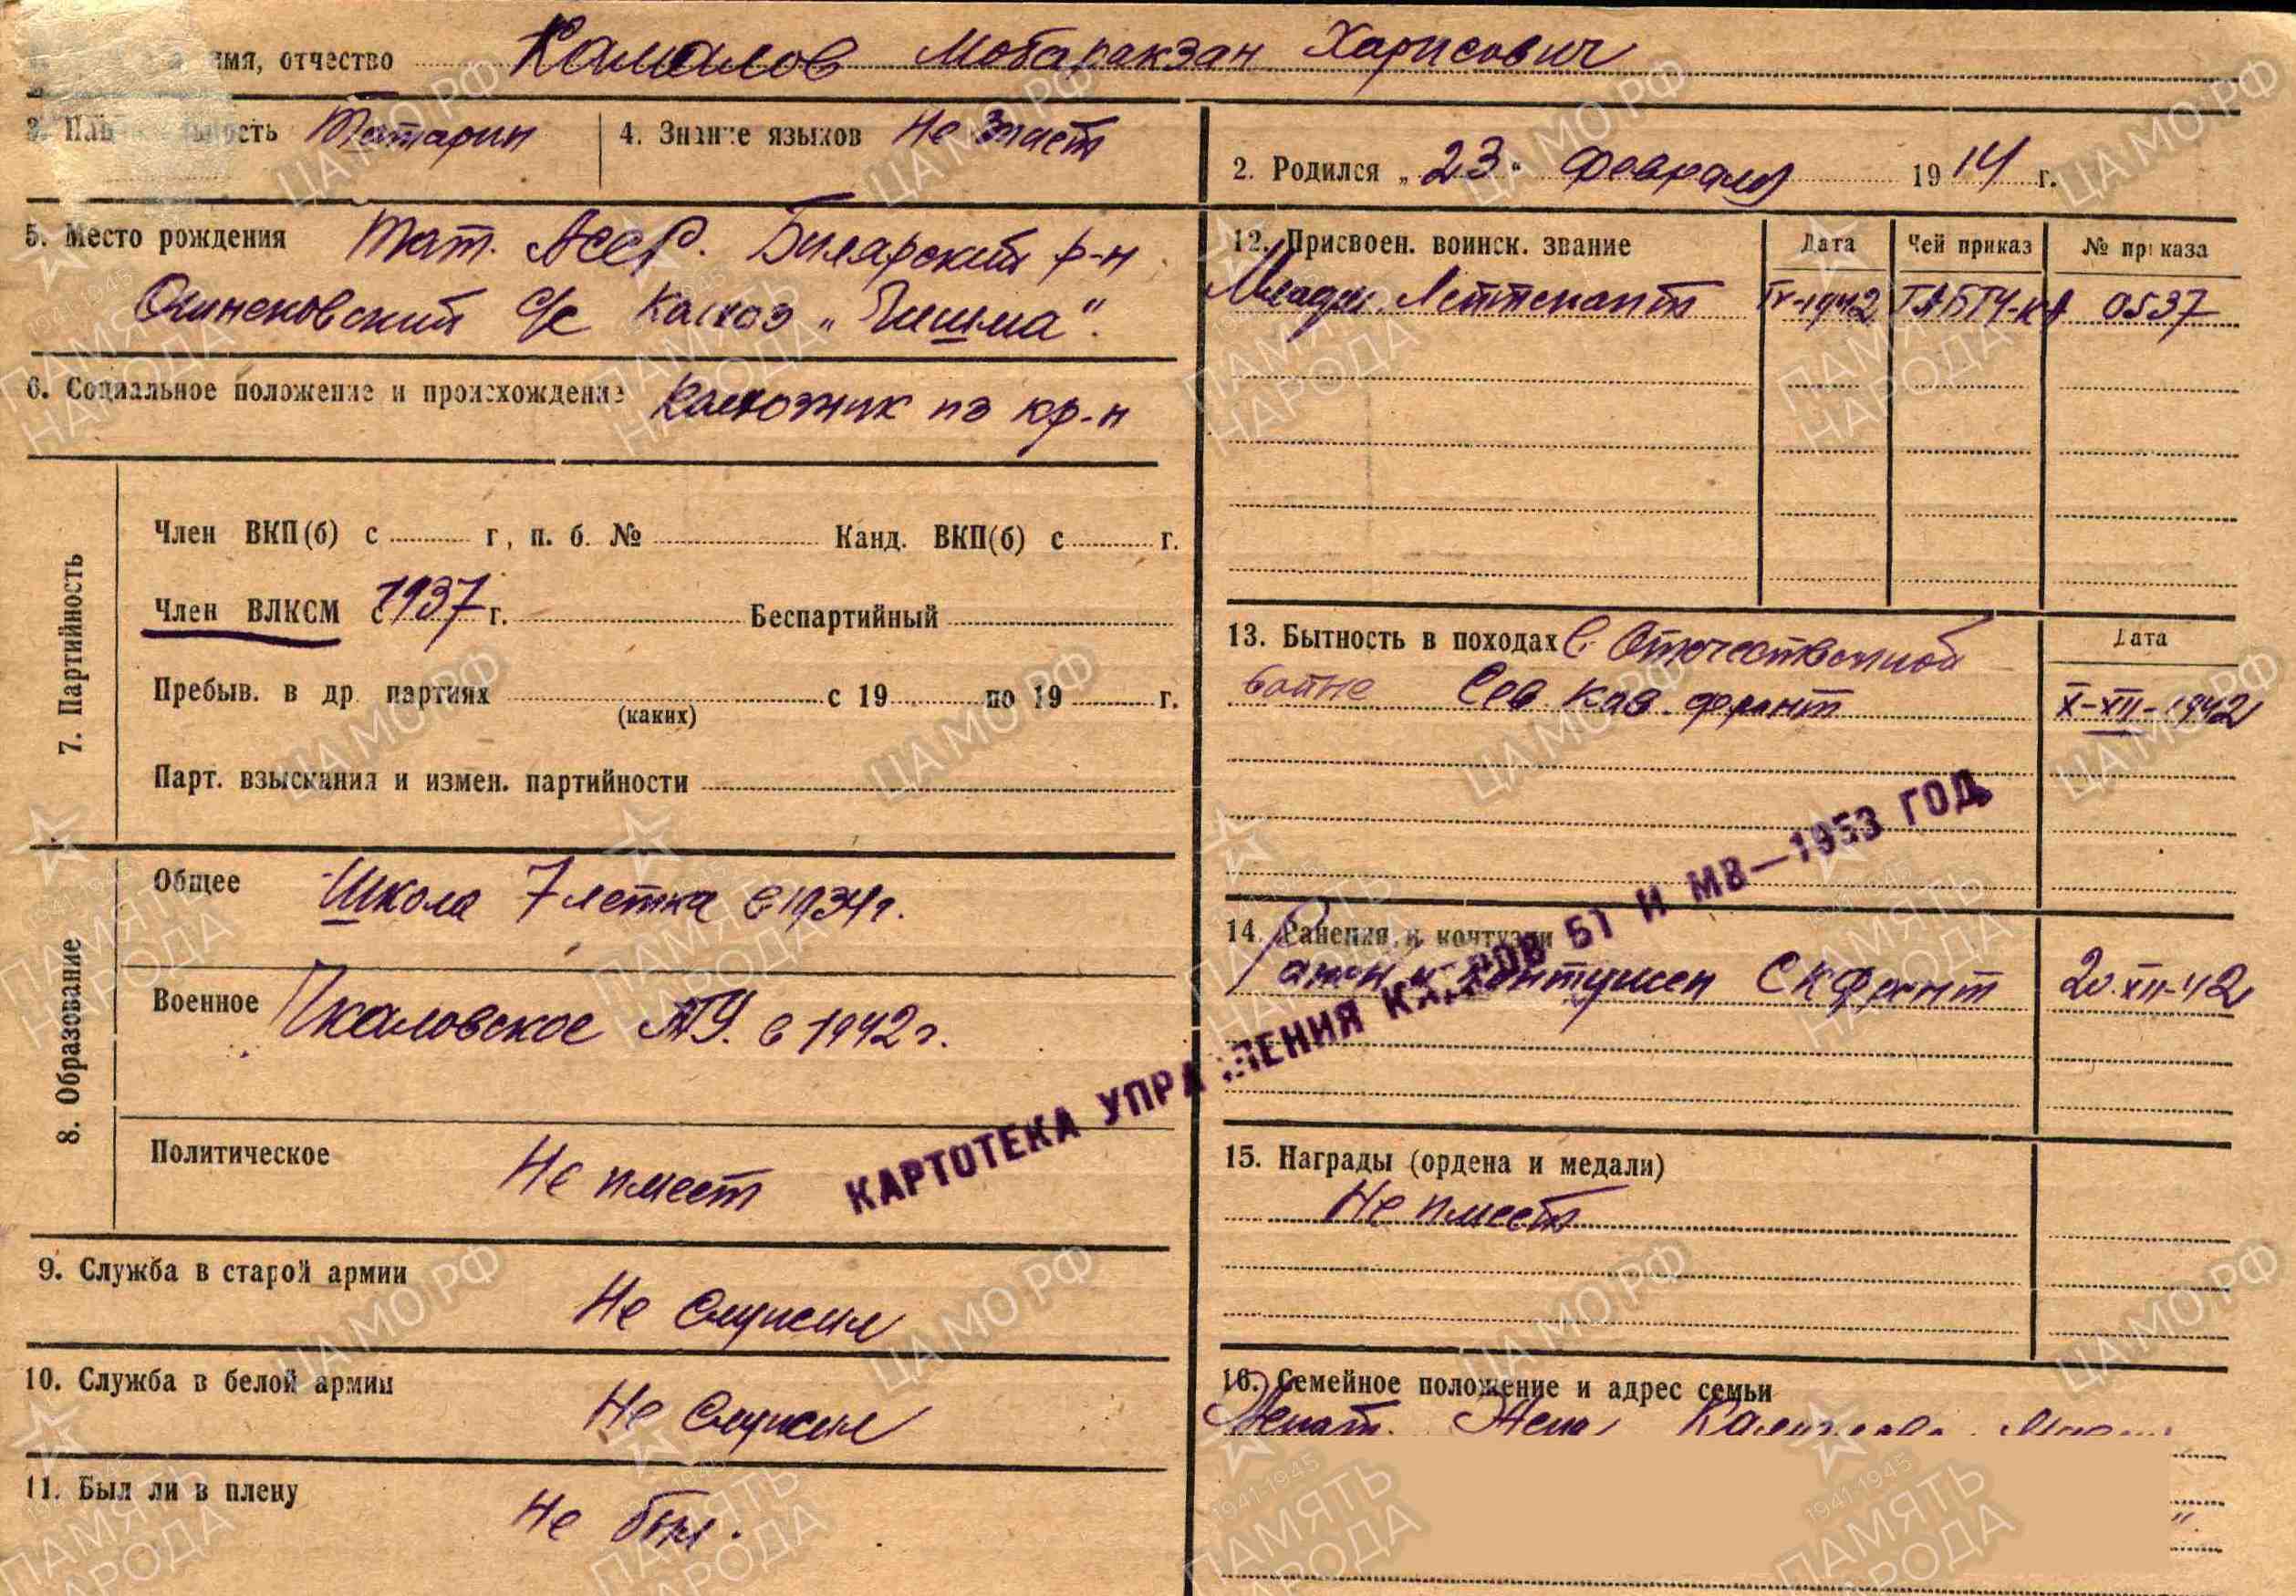 имя, отчество Камалов Мобаракзан Харисович
3. Национальность Татарин
4. Знание языков Не знает
2. Родился „23" февраля 1914 г.
5. Место рождения Тат. АССР. Билярский р-н
с/с Колхоз „Чишма".
6. Социальное положение и происхождение Колхозник из кр-н
7. Партийность
Член ВКП(б) с г, п. б. № Канд. ВКП(б) с г.
Член ВЛКСМ с 1937 г. Беспартийный
Пребыв. в др. партиях с 19 по 19 г.
(каких)
Парт. взыскания и измен. партийности
8. Образование
Общее Школа 7 летка в 1934 г.
Военное Чкаловское ТУ. в 1942 г.
Политическое Не имеет
9. Служба в старой армии Не служил
10. Служба в белой армии Не служил
11. Был ли в плену Не был.
12. Присвоен. воинск. звание Дата Чей приказ № приказа
Младш. Лейтенант IV-1942 ГАБТУ-КА 0537
13. Бытность в походах в Отечественной Дата
войне Сев. Кав. фронт X-XII-1942
14. Ранения и контузии
Ранен и контужен СКфронт 20.XII-42
15. Награды (ордена и медали)
Не имеет
16. Семейное положение и адрес семьи
Женат. Жена
КАРТОТЕКА УПРАВЛЕНИЯ КАДРОВ БТ И МВ—1953 ГОД
ЦАМО РФ
ПАМЯТЬ НАРОДА
1941-1945